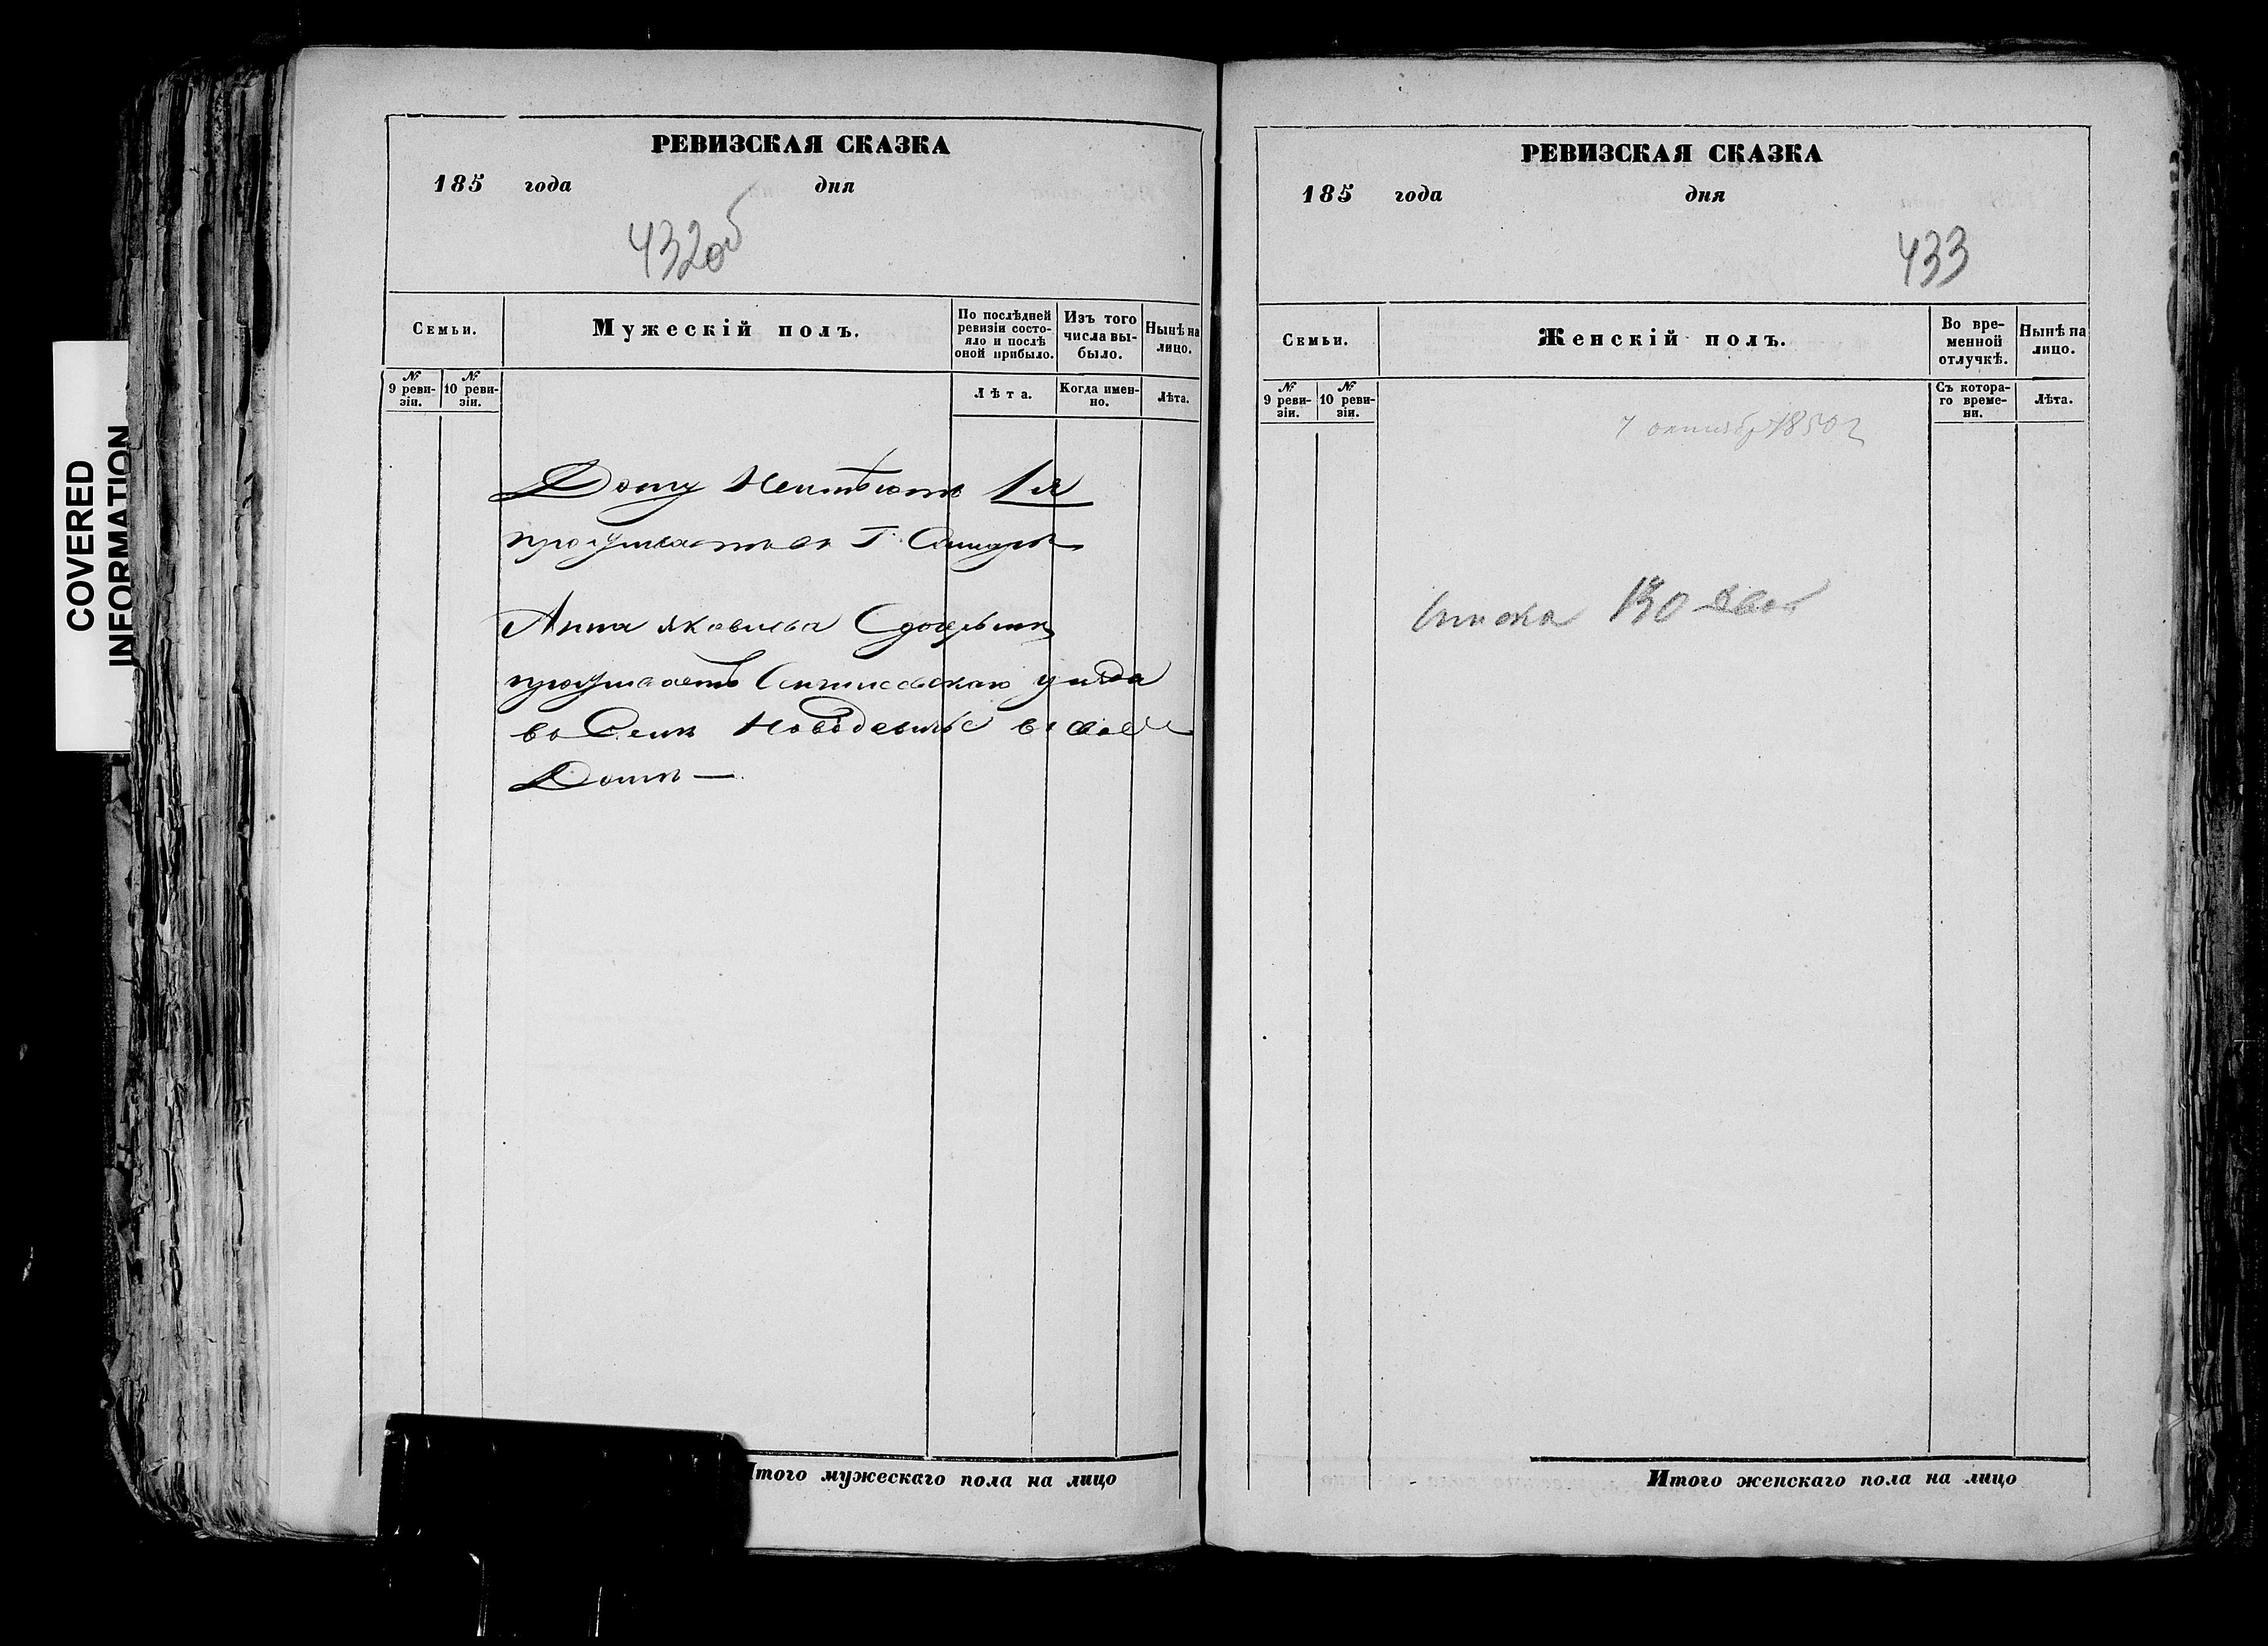 COVERED
INFORMATION
РЕВИЗСКАЯ СКАЗКА
185 года дня
432об
Семьи.
Мужескій полъ.
По послѣдней ревизіи состояло и послѣ оной прибыло.
Изъ того числа выбыло.
Нынѣ на лицо.
№ 9 ревизіи.
№ 10 ревизіи.
Лѣта.
Когда именно.
Лѣта.
Дому Неимѣютъ 1я
проживаетъ въ Г.
Анна Яковлева
проживаетъ уезда
въ Селе Новодевичье в
Доме —
Итого мужескаго пола на лицо
РЕВИЗСКАЯ СКАЗКА
185 года дня
433
Семьи.
Женскій полъ.
Во временной отлучкѣ.
Нынѣ на лицо.
№ 9 ревизіи.
№ 10 ревизіи.
Съ котораго времени.
Лѣта.
7 октября 1850 г
Итого женскаго пола на лицо